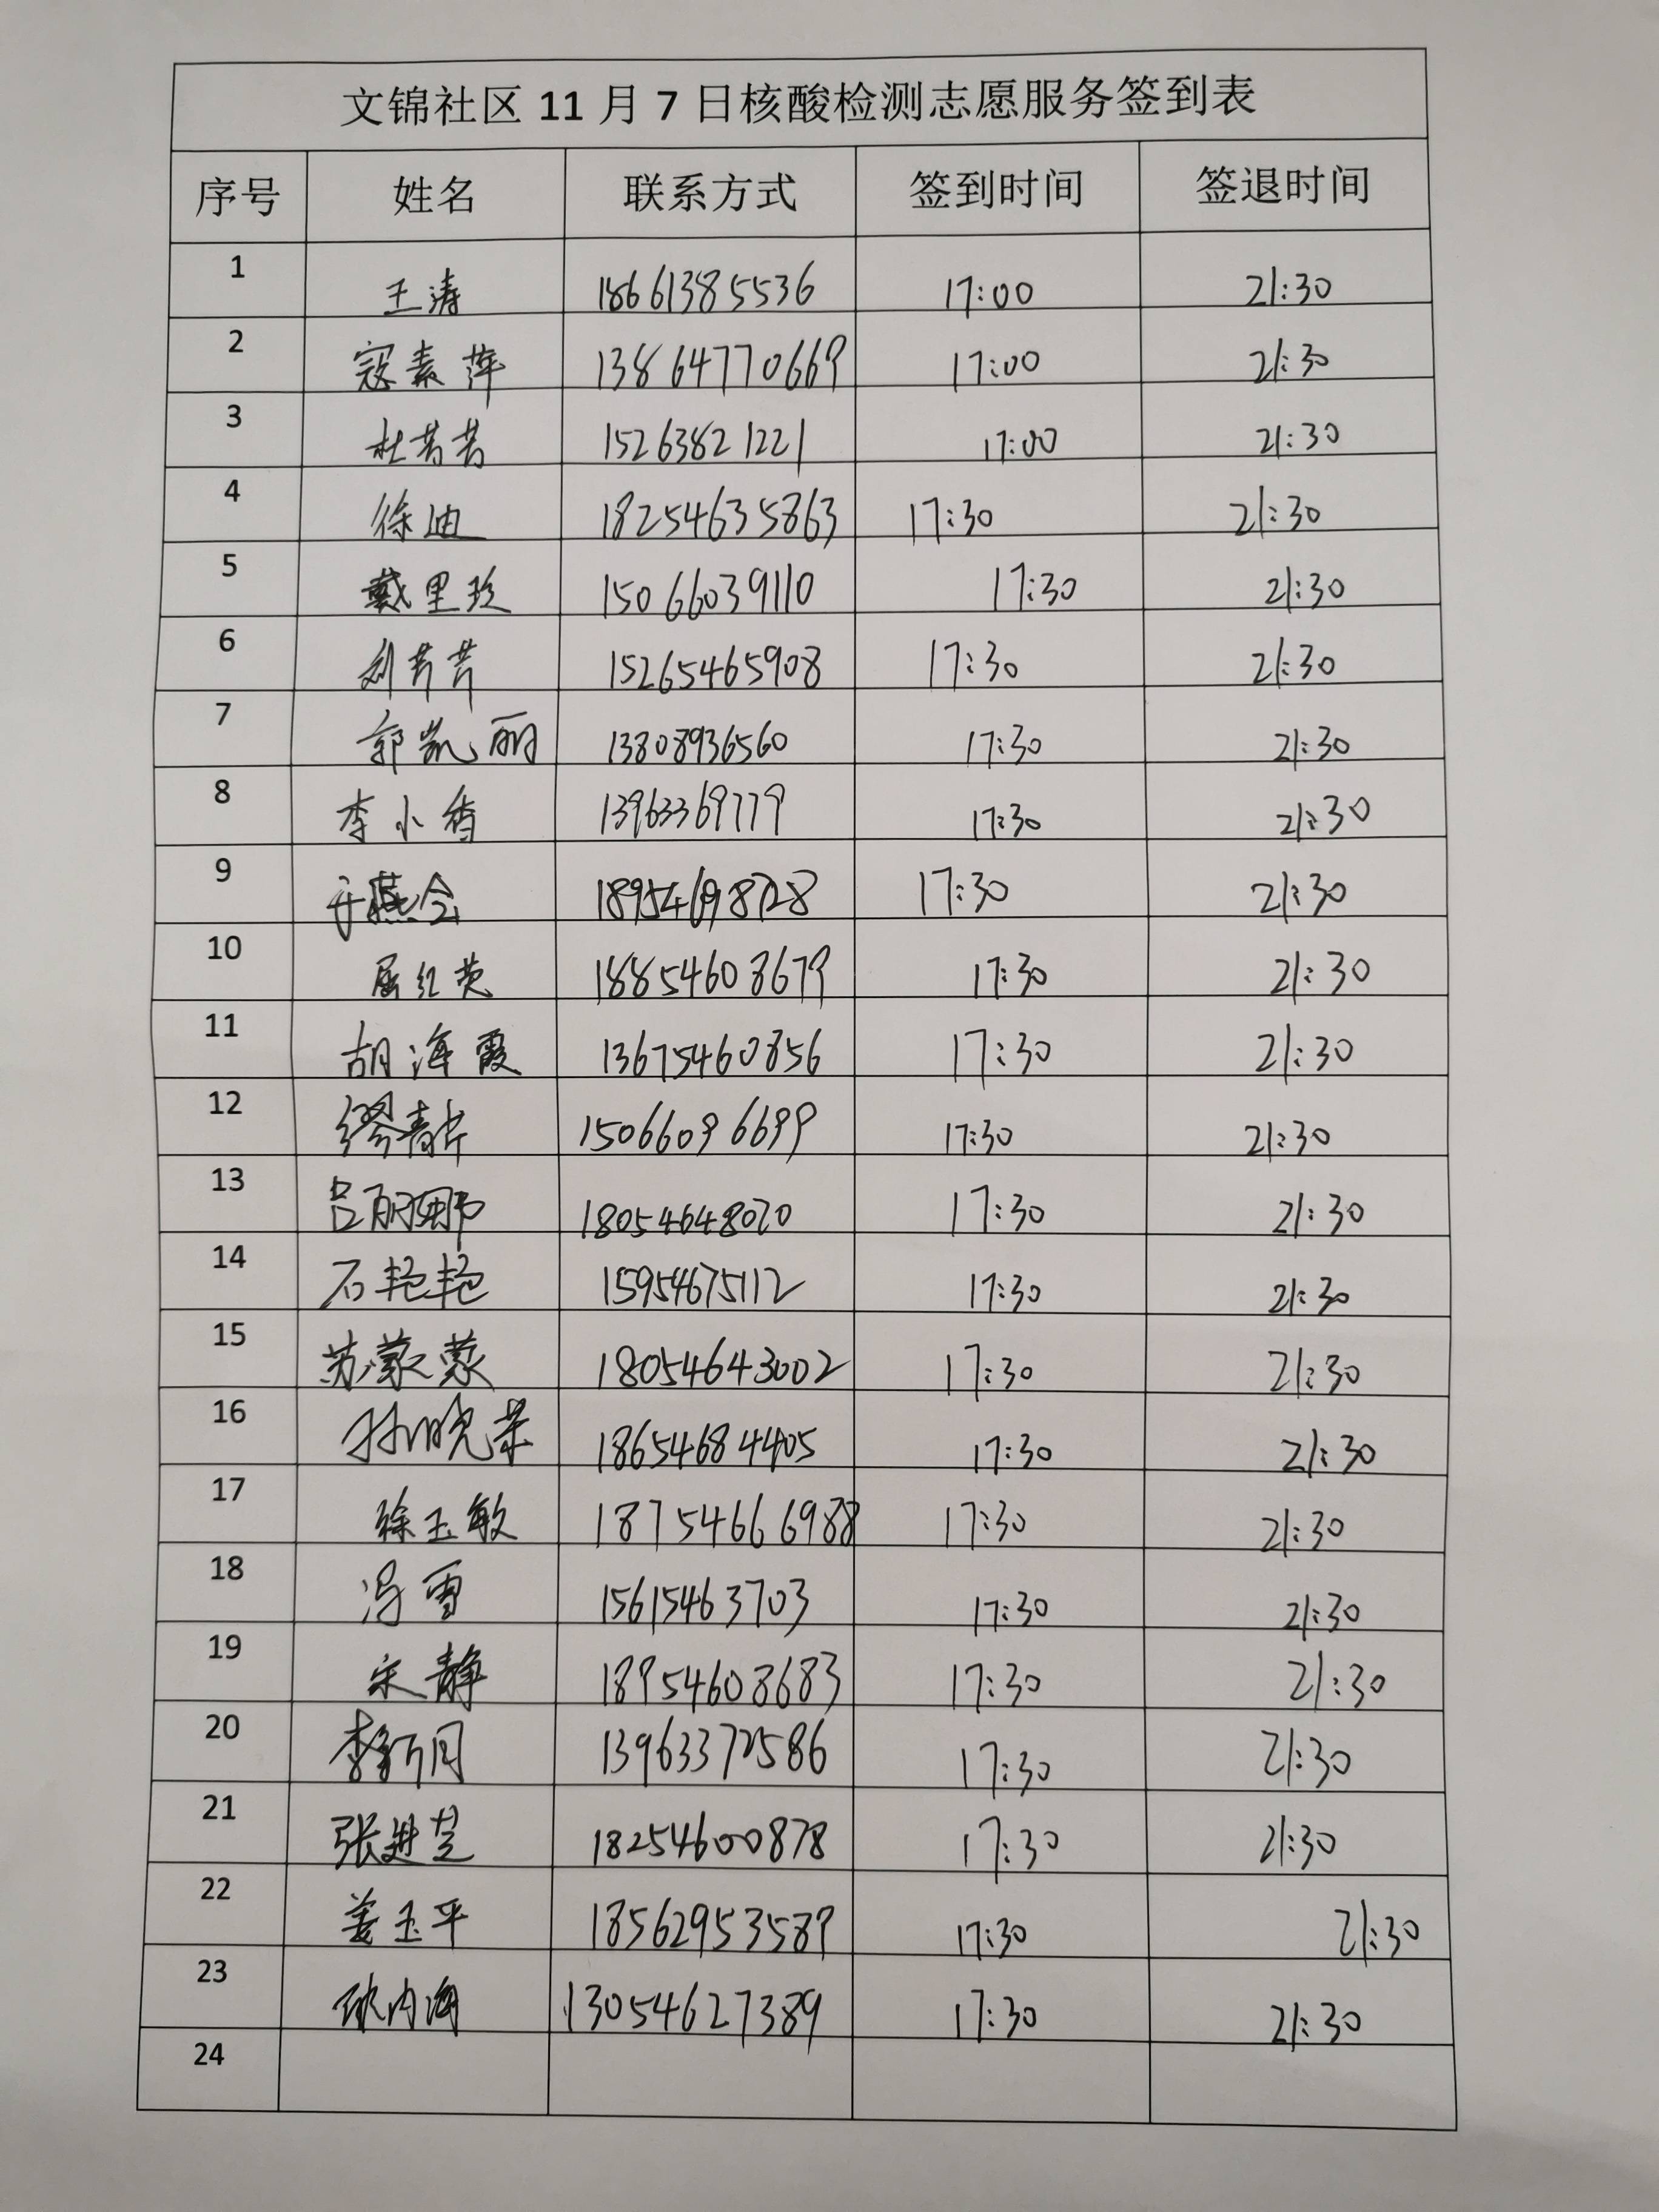 文锦社区 11 月 7 日核酸检测志愿服务签到表
序号 姓名 联系方式 签到时间 签退时间
1 王涛 18661385536 17:00 21:30
2 寇素萍 13864770669 17:00 21:30
3 杜芳芳 15263821221 17:00 21:30
4 徐迪 18254635863 17:30 21:30
5 戴里玲 15066039110 17:30 21:30
6 刘芹芹 15265465908 17:30 21:30
7 郭凯丽 13808936560 17:30 21:30
8 李小香 13963369779 17:30 21:30
9 于燕会 18954698728 17:30 21:30
10 屈红英 18854608679 17:30 21:30
11 胡海霞 13675460856 17:30 21:30
12 缪青 15066096699 17:30 21:30
13 吕丽娜 18054648070 17:30 21:30
14 石艳艳 15954675112 17:30 21:30
15 苏蒙蒙 18054643002 17:30 21:30
16 孙晓荣 18654684405 17:30 21:30
17 徐玉敏 18754666988 17:30 21:30
18 冯雪 15615463703 17:30 21:30
19 宋静 18954608683 17:30 21:30
20 李新月 13963372586 17:30 21:30
21 张进芝 18254600878 17:30 21:30
22 姜玉平 18562953589 17:30 21:30
23 海 13054627389 17:30 21:30
24